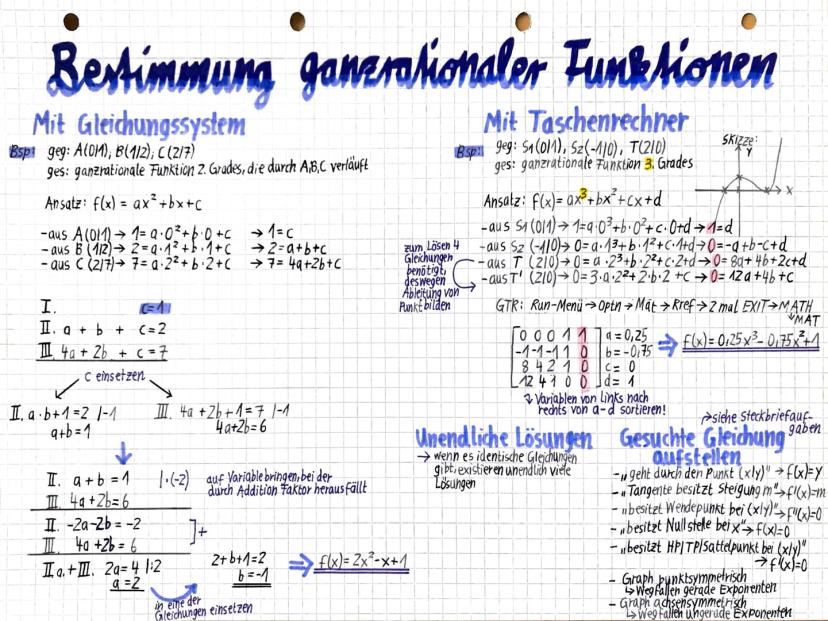 Bestimmung ganzrationaler Funktionen
Mit Gleichungssystem
Bsp: geg: A(0|1), B(1|2); C(2|7)
ges: ganzrationale Funktion 2. Grades, die durch A,B,C verläuft
Ansatz: f(x) = ax²+bx+c
-aus A(0|1) → 1=a·0²+b·0+c → 1=c
-aus B(1|2) → 2=a·1²+b·1+c → 2=a+b+c
-aus C(2|7) → 7=a·2²+b·2+c → 7=4a+2b+c
I. c=1
II. a + b + c=2
III. 4a + 2b + c=7
c einsetzen
II. a·b+1=2 |-1 III. 4a+2b+1=7 |-1
a+b=1 4a+2b=6
II. a+b=1 |·(-2) auf Variable bringen, bei der
durch Addition Faktor herausfällt
III. 4a+2b=6
II. -2a-2b=-2
III. 4a+2b=6 ]+
II.a.+III. 2a=4 |:2 2+b+1=2 ⇒ f(x)=2x²-x+1
a=2 b=-1
in eine der
Gleichungen einsetzen
Mit Taschenrechner
Bsp: geg: S1(0|1), S2(-1|0), T(2|0)
ges: ganzrationale Funktion 3. Grades
SKIZZE:
Y
X
Ansatz: f(x)= ax³+bx²+cx+d
-aus S1(0|1)→ 1=a·0³+b·0²+c·0+d →1=d
-aus S2 (-1|0)→0=a·1³+b·1²+c·1+d→0=-a+b-c+d
-aus T (2|0)→0=a·2³+b·2²+c·2+d→0=8a+4b+2c+d
-aus T' (2|0)→0=3·a·2²+2·b·2+c →0=12a+4b+c
zum Lösen 4
Gleichungen
benötigt,
deswegen
Ableitung von
Punkt bilden
GTR: Run-Menü→Optn→Mat→Rref→2 mal EXIT→MATH
↓MAT
[0 0 0 1 1] a=0,25
-1 -1 -1 1 0 b=-0,75 ⇒ f(x)=0,25x³-0,75x²+1
8 4 2 1 0 c= 0
12 4 1 0 0 d= 1
↳ Variablen von links nach
rechts von a-d sortieren!
Unendliche Lösungen
→ wenn es identische Gleichungen
gibt, existieren unendlich viele
Lösungen
→siehe Steckbriefauf-
gaben
Gesuchte Gleichung
aufstellen
-„geht durch den Punkt (x|y)"→ f(x)=y
-„Tangente besitzt Steigung m"→f'(x)=m
-„besitzt Wendepunkt bei (x|y)"→f''(x)=0
-„besitzt Nullstelle bei x"→f(x)=0
-„besitzt HP/TP/Sattelpunkt bei (x|y)"
→ f'(x)=0
- Graph punktsymmetrisch
↳ Wegfallen gerade Exponenten
- Graph achsensymmetrisch
↳ Wegfallen ungerade Exponenten